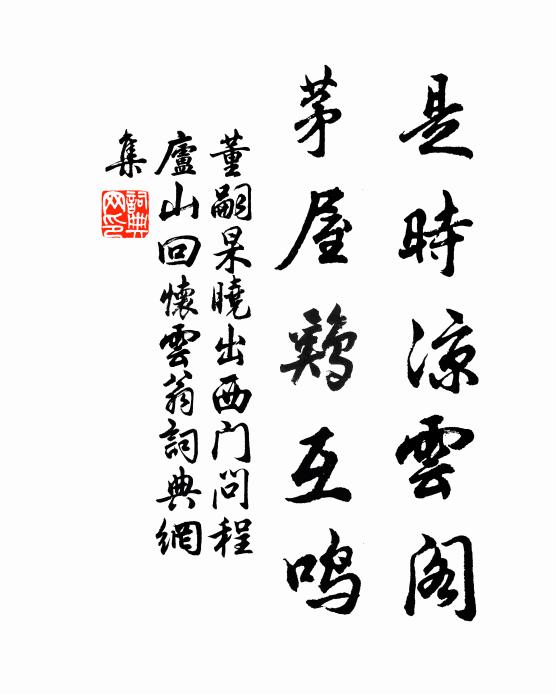 是時涼雲阁
茅屋鷄互鸣
董嗣杲曉出西门问程
廬山回懷雲翁詞典網
集
詞典
网印